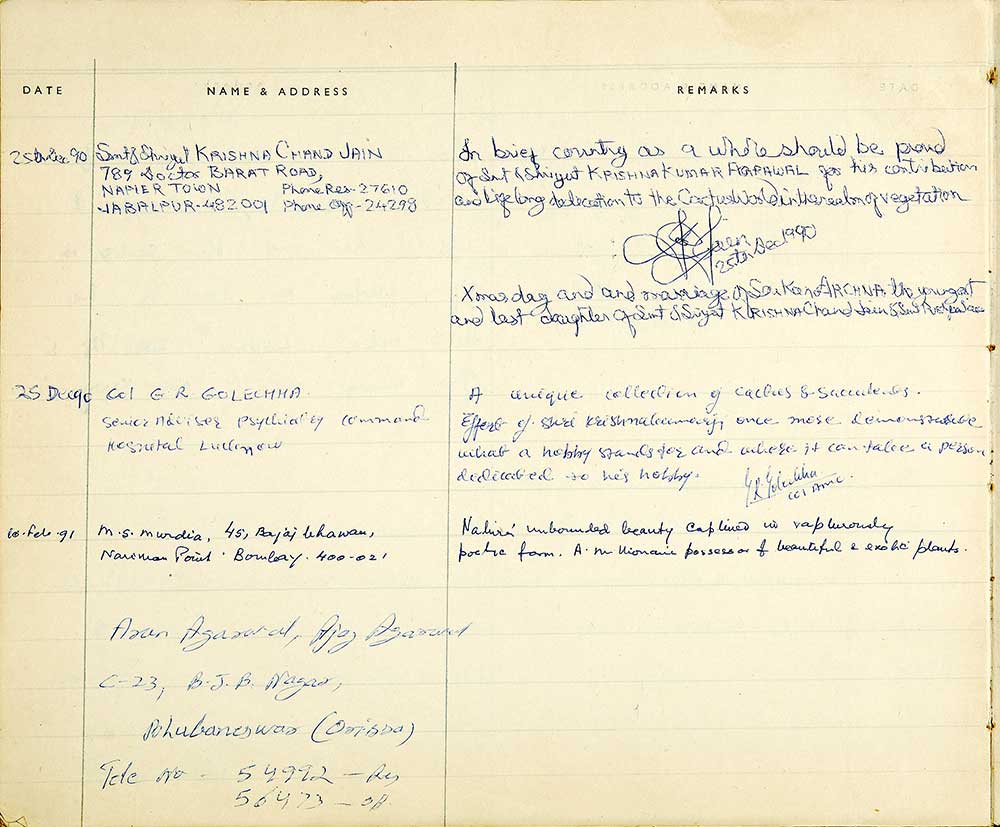 DATE NAME & ADDRESS REMARKS
25th Dec 90 Smt & Shriyut KRISHNA CHAND JAIN
789 Doctor BARAT ROAD,
NAPIER TOWN Phone Res-27610
JABALPUR-482001 Phone Off-24298
In brief country as a whole should be proud
of Smt & Shriyut KRISHNA KUMAR AGRAWAL for his contribution
and life long dedication to the Cactus World in the realm of vegetation
Jain
25th Dec 1990
Xmas day and and marriage of Sou ARCHNA the youngest
and last daughter of Smt & Shriyut KRISHNA Chand Jain & Smt
25 Dec 90 Col G R GOLECHHA
Senior Advisor Psychiatry Command
Hospital Lucknow
A unique collection of cactus & succulents.
Effort of Shri Krishnakumarji once more demonstrate
what a hobby stands for and where it can take a person
dedicated to his hobby.
G R Golechha
Col AMC.
10. Feb. 91 M. S. Murdia, 45, Bajaj bhawan,
Nariman Point Bombay. 400-021
Nature's unbounded beauty captured in rapturously
poetic form. A millionaire possessor of beautiful & exotic plants.
Arun Agarwal, Ajay Agarwal
C-23, B.J.B. Nagar,
Bhubaneswar (Orissa)
Tele No - 54992 - Res
56473 - off.